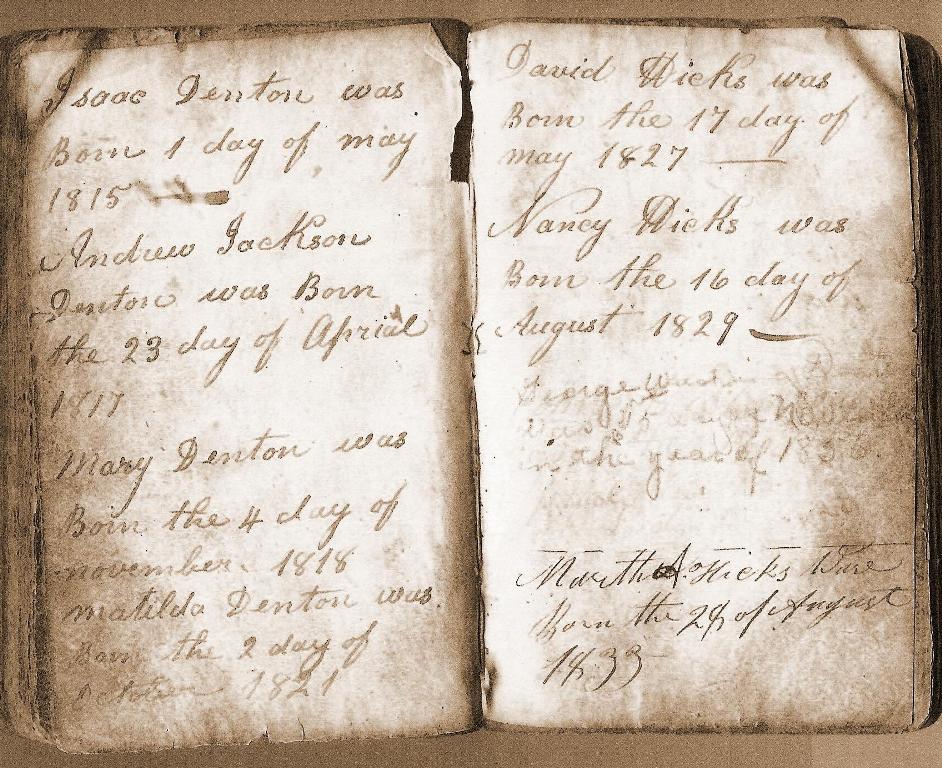 Isaac Denton was
Born 1 day of may
1815
Andrew Jackson
Denton was Born
the 23 day of Aprial
1817
Mary Denton was
Born the 4 day of
november 1818
matilda Denton was
Born the 2 day of
October 1821
David Hicks was
Born the 17 day of
may 1827
Nancy Hicks was
Born the 16 day of
August 1829
George
was
in the year of 183
Martha Hicks Was
Born the 28 of August
1833